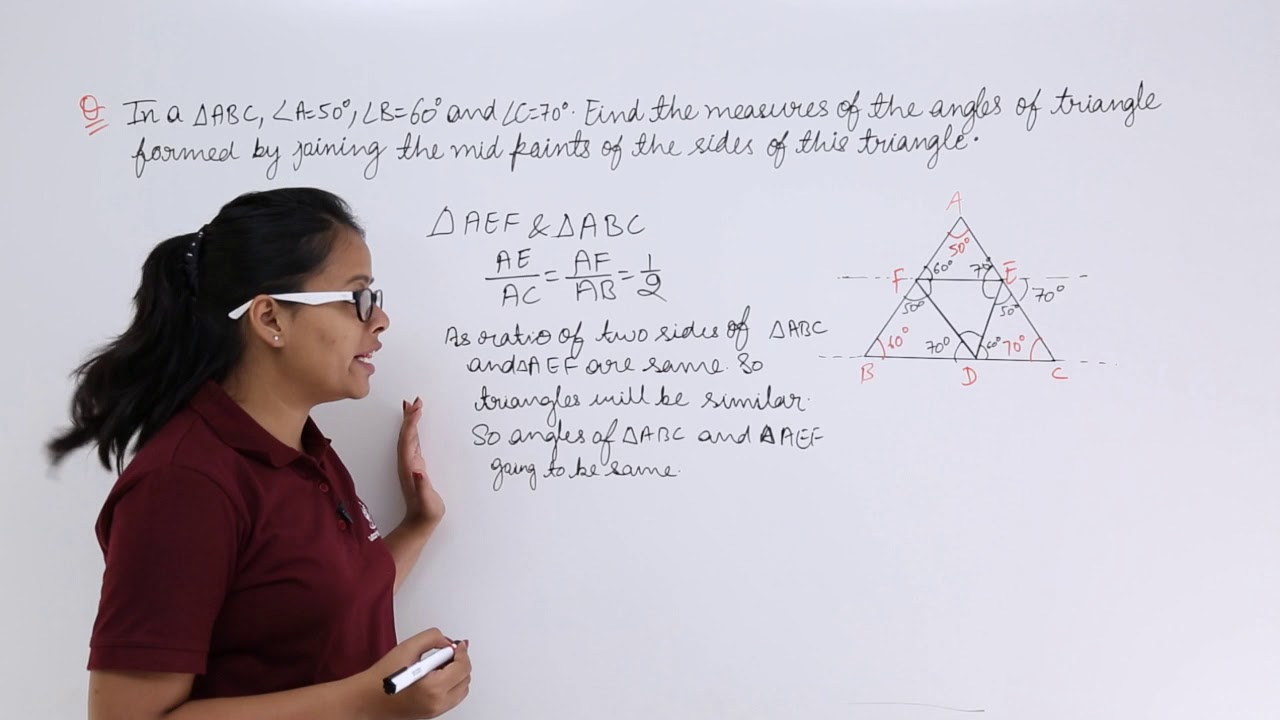 Q In a △ABC, ∠A=50°, ∠B=60° and ∠C=70°. Find the measures of the angles of triangle
formed by joining the mid points of the sides of this triangle.
△AEF & △ABC
AE/AC = AF/AB = 1/2
As ratio of two sides of △ABC
and △AEF are same. So
triangles will be similar.
So angles of △ABC and △AEF
going to be same.
A
50°
F 60° 70° E 70°
50° 50°
60° 70° 60° 70°
B D C